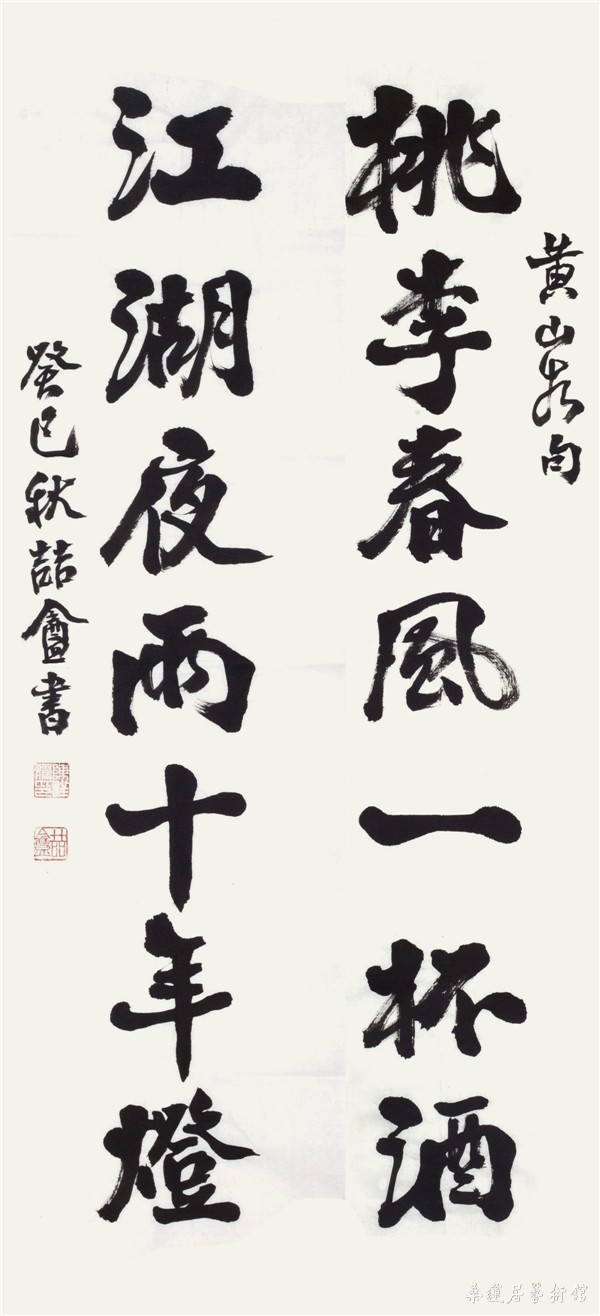 黃山谷句
桃李春風一杯酒
江湖夜雨十年燈
癸巳秋喆盦書
桑蓮居藝術館